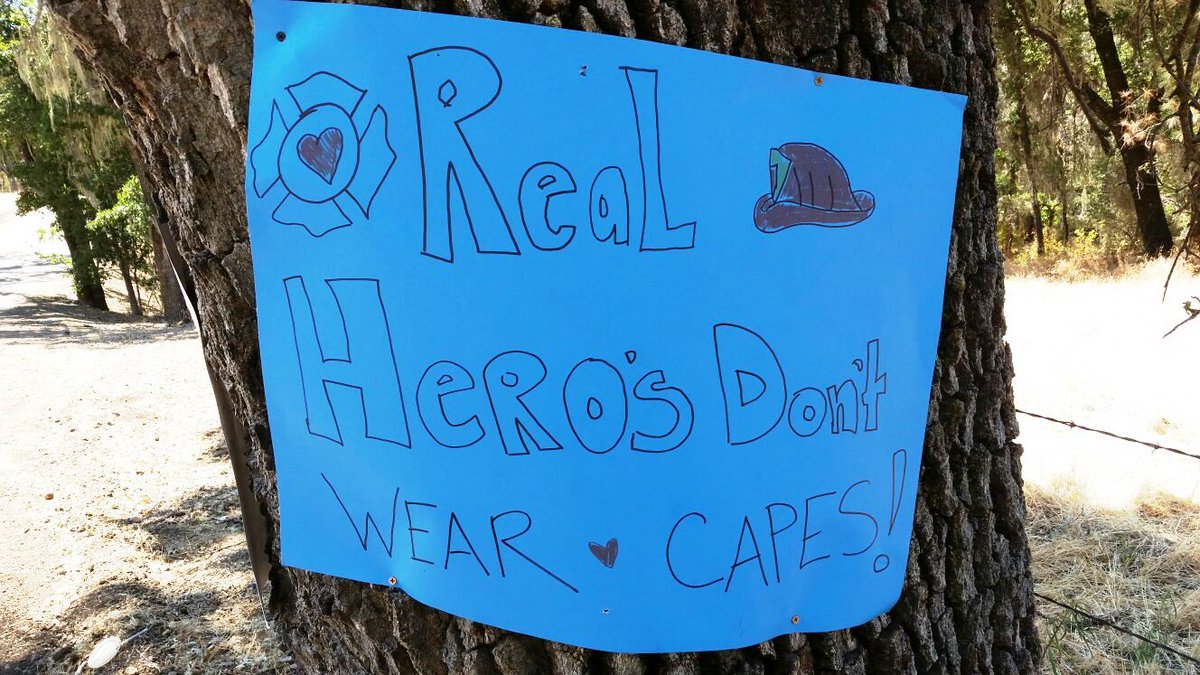 Real
Hero's Don't
WEAR CAPES!